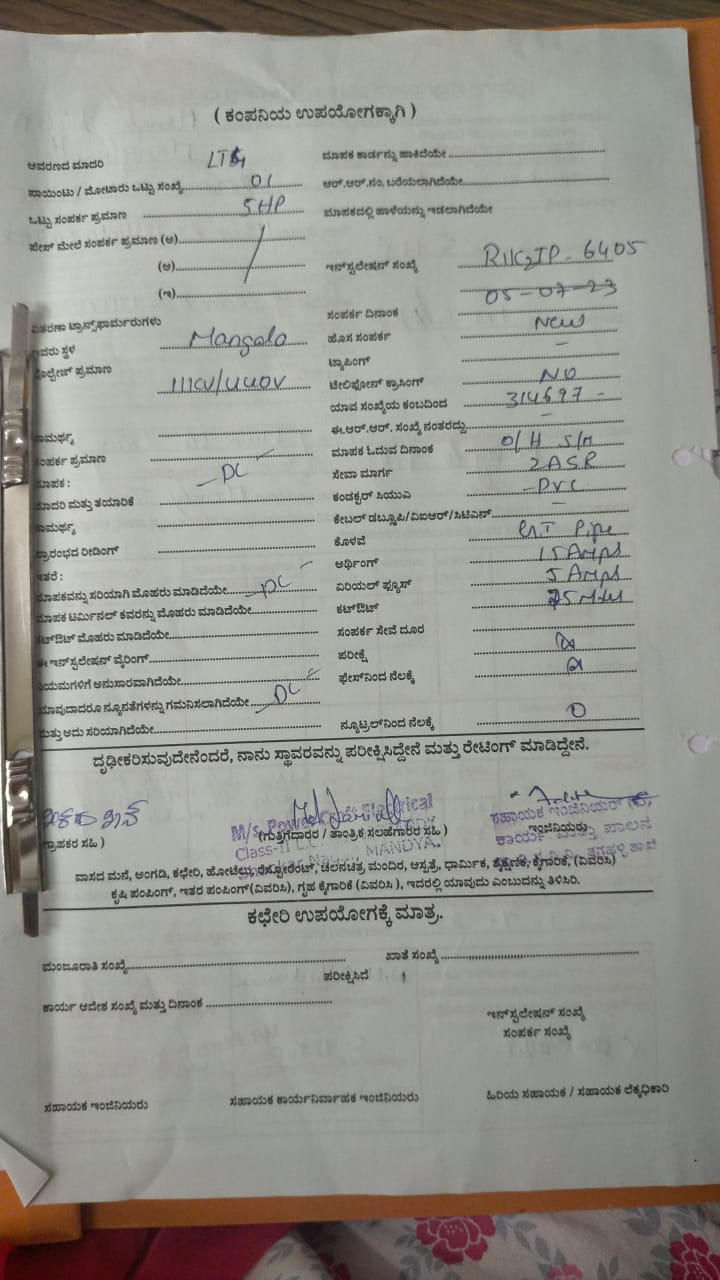 ( ಕಂಪನಿಯ ಉಪಯೋಗಕ್ಕಾಗಿ )
ಆವರಣದ ಮಾದರಿ
ಮಾಪಕ ಕಾರ್ಡನ್ನು ಹಾಕಿದೆಯೇ
ಪಾಯಿಂಟು / ಮೋಟಾರು ಒಟ್ಟು ಸಂಖ್ಯೆ 01
ಆರ್.ಆರ್.ನಂ. ಬರೆಯಲಾಗಿದೆಯೇ
ಒಟ್ಟು ಸಂಪರ್ಕ ಪ್ರಮಾಣ 5HP
ಮಾಪಕದಲ್ಲಿ ಹಾಳೆಯನ್ನು ಇಡಲಾಗಿದೆಯೇ
ಪೇಸ್ ಮೇಲೆ ಸಂಪರ್ಕ ಪ್ರಮಾಣ (ಅ)
(ಆ)
(ಇ)
ಇನ್‌ಸ್ಟಲೇಷನ್ ಸಂಖ್ಯೆ 6405
05-07-23
ವಿತರಣಾ ಟ್ರಾನ್ಸ್‌ಫಾರ್ಮರುಗಳು
ಸಂಪರ್ಕ ದಿನಾಂಕ
ಇವರು ಸ್ಥಳ Mangala
ಹೊಸ ಸಂಪರ್ಕ New
ವೋಲ್ಟೇಜ್ ಪ್ರಮಾಣ 11KV/440V
ಟ್ಯಾಪಿಂಗ್ –
ಟೆಲಿಫೋನ್ ಕ್ರಾಸಿಂಗ್ NO
ಯಾವ ಸಂಖ್ಯೆಯ ಕಂಬದಿಂದ 314697 -
ಸಾಮರ್ಥ್ಯ
ಈ.ಆರ್.ಆರ್. ಸಂಖ್ಯೆ ನಂತರದ್ದು –
ಸಂಪರ್ಕ ಪ್ರಮಾಣ
ಮಾಪಕ ಓದುವ ದಿನಾಂಕ O/H S/M
ಮಾಪಕ : DC
ಸೇವಾ ಮಾರ್ಗ 2ASR
ಮಾದರಿ ಮತ್ತು ತಯಾರಿಕೆ
ಕಂಡಕ್ಟರ್ ಸಿಯುಎ PVC
ಸಾಮರ್ಥ್ಯ
ಕೇಬಲ್ ಡಬ್ಲ್ಯೂಪಿ/ವಿಐಆರ್/ಸಿಟಿಎನ್ –
ಪ್ರಾರಂಭದ ರೀಡಿಂಗ್
ಕೊಳವೆ GI Pipe
ಇತರೆ :
ಅರ್ಥಿಂಗ್ 15 Amps
ಮಾಪಕವನ್ನು ಸರಿಯಾಗಿ ಮೊಹರು ಮಾಡಿದೆಯೇ DC
ಏರಿಯಲ್ ಫ್ಯೂಸ್ 5 Amps
ಮಾಪಕ ಟರ್ಮಿನಲ್ ಕವರನ್ನು ಮೊಹರು ಮಾಡಿದೆಯೇ
ಕಟ್‌ಔಟ್
ಕಟ್‌ಔಟ್ ಮೊಹರು ಮಾಡಿದೆಯೇ
ಸಂಪರ್ಕ ಸೇವೆ ದೂರ
ಈ ಇನ್‌ಸ್ಟಲೇಷನ್ ವೈರಿಂಗ್
ಪರೀಕ್ಷೆ
ನಿಯಮಗಳಿಗೆ ಅನುಸಾರವಾಗಿದೆಯೇ
ಫೇಸ್‌ನಿಂದ ನೆಲಕ್ಕೆ
ಯಾವುದಾದರೂ ನ್ಯೂನತೆಗಳನ್ನು ಗಮನಿಸಲಾಗಿದೆಯೇ DC
ಮತ್ತು ಅದು ಸರಿಯಾಗಿದೆಯೇ
ನ್ಯೂಟ್ರಲ್‌ನಿಂದ ನೆಲಕ್ಕೆ 0
ದೃಢೀಕರಿಸುವುದೇನೆಂದರೆ, ನಾನು ಸ್ಥಾವರವನ್ನು ಪರೀಕ್ಷಿಸಿದ್ದೇನೆ ಮತ್ತು ರೇಟಿಂಗ್ ಮಾಡಿದ್ದೇನೆ.
M/s. Electrical
ಸಹಾಯಕ ಇಂಜಿನಿಯರ್
ಗ್ರಾಹಕರ ಸಹಿ )
(ಗುತ್ತಿಗೆದಾರರ / ತಾಂತ್ರಿಕ ಸಲಹೆಗಾರರ ಸಹಿ )
ಇಂಜಿನಿಯರು
ಕಾರ್ಯ ಮತ್ತು ಪಾಲನೆ
Class-II
MANDYA.
ವಾಸದ ಮನೆ, ಅಂಗಡಿ, ಕಛೇರಿ, ಹೋಟೆಲು, ರೆಸ್ಟೋರೆಂಟ್, ಚಲನಚಿತ್ರ ಮಂದಿರ, ಆಸ್ಪತ್ರೆ, ಧಾರ್ಮಿಕ, ಶೈಕ್ಷಣಿಕ, ಕೈಗಾರಿಕೆ, (ವಿವರಿಸಿ)
ಕೃಷಿ ಪಂಪಿಂಗ್, ಇತರ ಪಂಪಿಂಗ್(ವಿವರಿಸಿ), ಗೃಹ ಕೈಗಾರಿಕೆ (ವಿವರಿಸಿ ), ಇದರಲ್ಲಿ ಯಾವುದು ಎಂಬುದನ್ನು ತಿಳಿಸಿರಿ.
ಕಛೇರಿ ಉಪಯೋಗಕ್ಕೆ ಮಾತ್ರ.
ಮಂಜೂರಾತಿ ಸಂಖ್ಯೆ
ಖಾತೆ ಸಂಖ್ಯೆ
ಪರೀಕ್ಷಿಸಿದೆ
ಕಾರ್ಯ ಆದೇಶ ಸಂಖ್ಯೆ ಮತ್ತು ದಿನಾಂಕ
ಇನ್‌ಸ್ಟಲೇಷನ್ ಸಂಖ್ಯೆ
ಸಂಪರ್ಕ ಸಂಖ್ಯೆ
ಸಹಾಯಕ ಇಂಜಿನಿಯರು
ಸಹಾಯಕ ಕಾರ್ಯನಿರ್ವಾಹಕ ಇಂಜಿನಿಯರು
ಹಿರಿಯ ಸಹಾಯಕ / ಸಹಾಯಕ ಲೆಕ್ಕಧಿಕಾರಿ